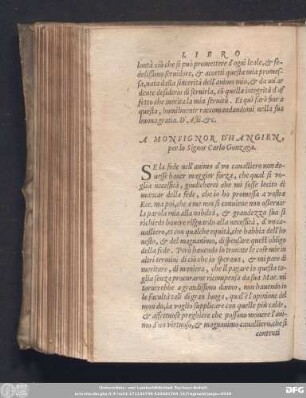 LIBRO
lontà ciò che si può promettere d'ogni leale, & fe-
delissimo servidore, & accetti questa mia promes-
sa, nata dalla sincerità dell'animo mio, & da un'ar
dente desiderio di servirla, cō quella integrità d'af
fetto che merita la mia servitù. Et quì farò fine a
questa, humilmente raccomandandomi nella sua
buonagratia. D'Asti. &c.
A MONSIGNOR D'HANGIEN,
per lo Signor Carlo Gonzaga.
SE la fede nell'animo d'un cavalliero non do-
vesse haver maggior forza, che qual si vo-
glia necessità, giudicherei che mi fosse lecito di
mancar della fede, che io ho promessa a vostra
Ecc. ma poi, che a me non si conviene non osservar
la parola mia alla nobiltà, & grandezza sua si
richiede havere risguardo alla necessità, d'un ca-
valliero, et con qualche equità, che habbia dell'ho
nesto, & del magnanimo, dispensare quell'obligo
della fede. Però havendo io trovate le cose mie in
altri termini di ciò che io sperava, & mi pare di
meritare, di maniera, che il pagare in questa ta
glia senza procurarne ricompensa da sua Mae. mi
tornerebbe a grandissimo danno, non havendo io
le facultà tali di gran lunga, qual'è l'openione del
mondo, la voglio supplicare con quelle più calde,
& affettuose preghiere che possino movere l'ani-
mo d'un virtuoso, & magnanimo cavalliero, che si
contenti